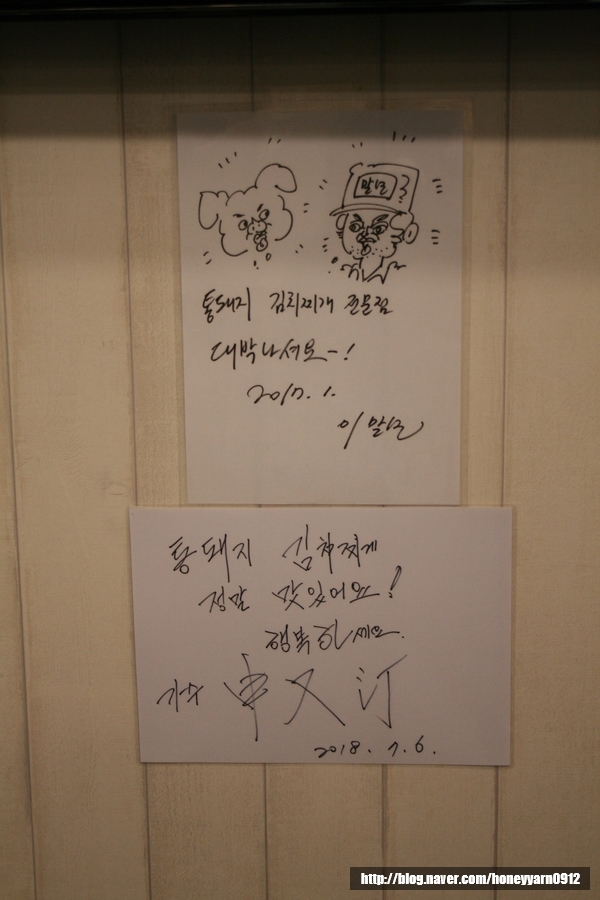 말년
통돼지 김치찌개 전문점
대박나셔요~!
2017. 1.
이말년
통돼지 김치찌게
정말 맛있어요!
행복하세요.
가수 申又汀
2018. 7. 6.
http://blog.naver.com/honeyyarn0912